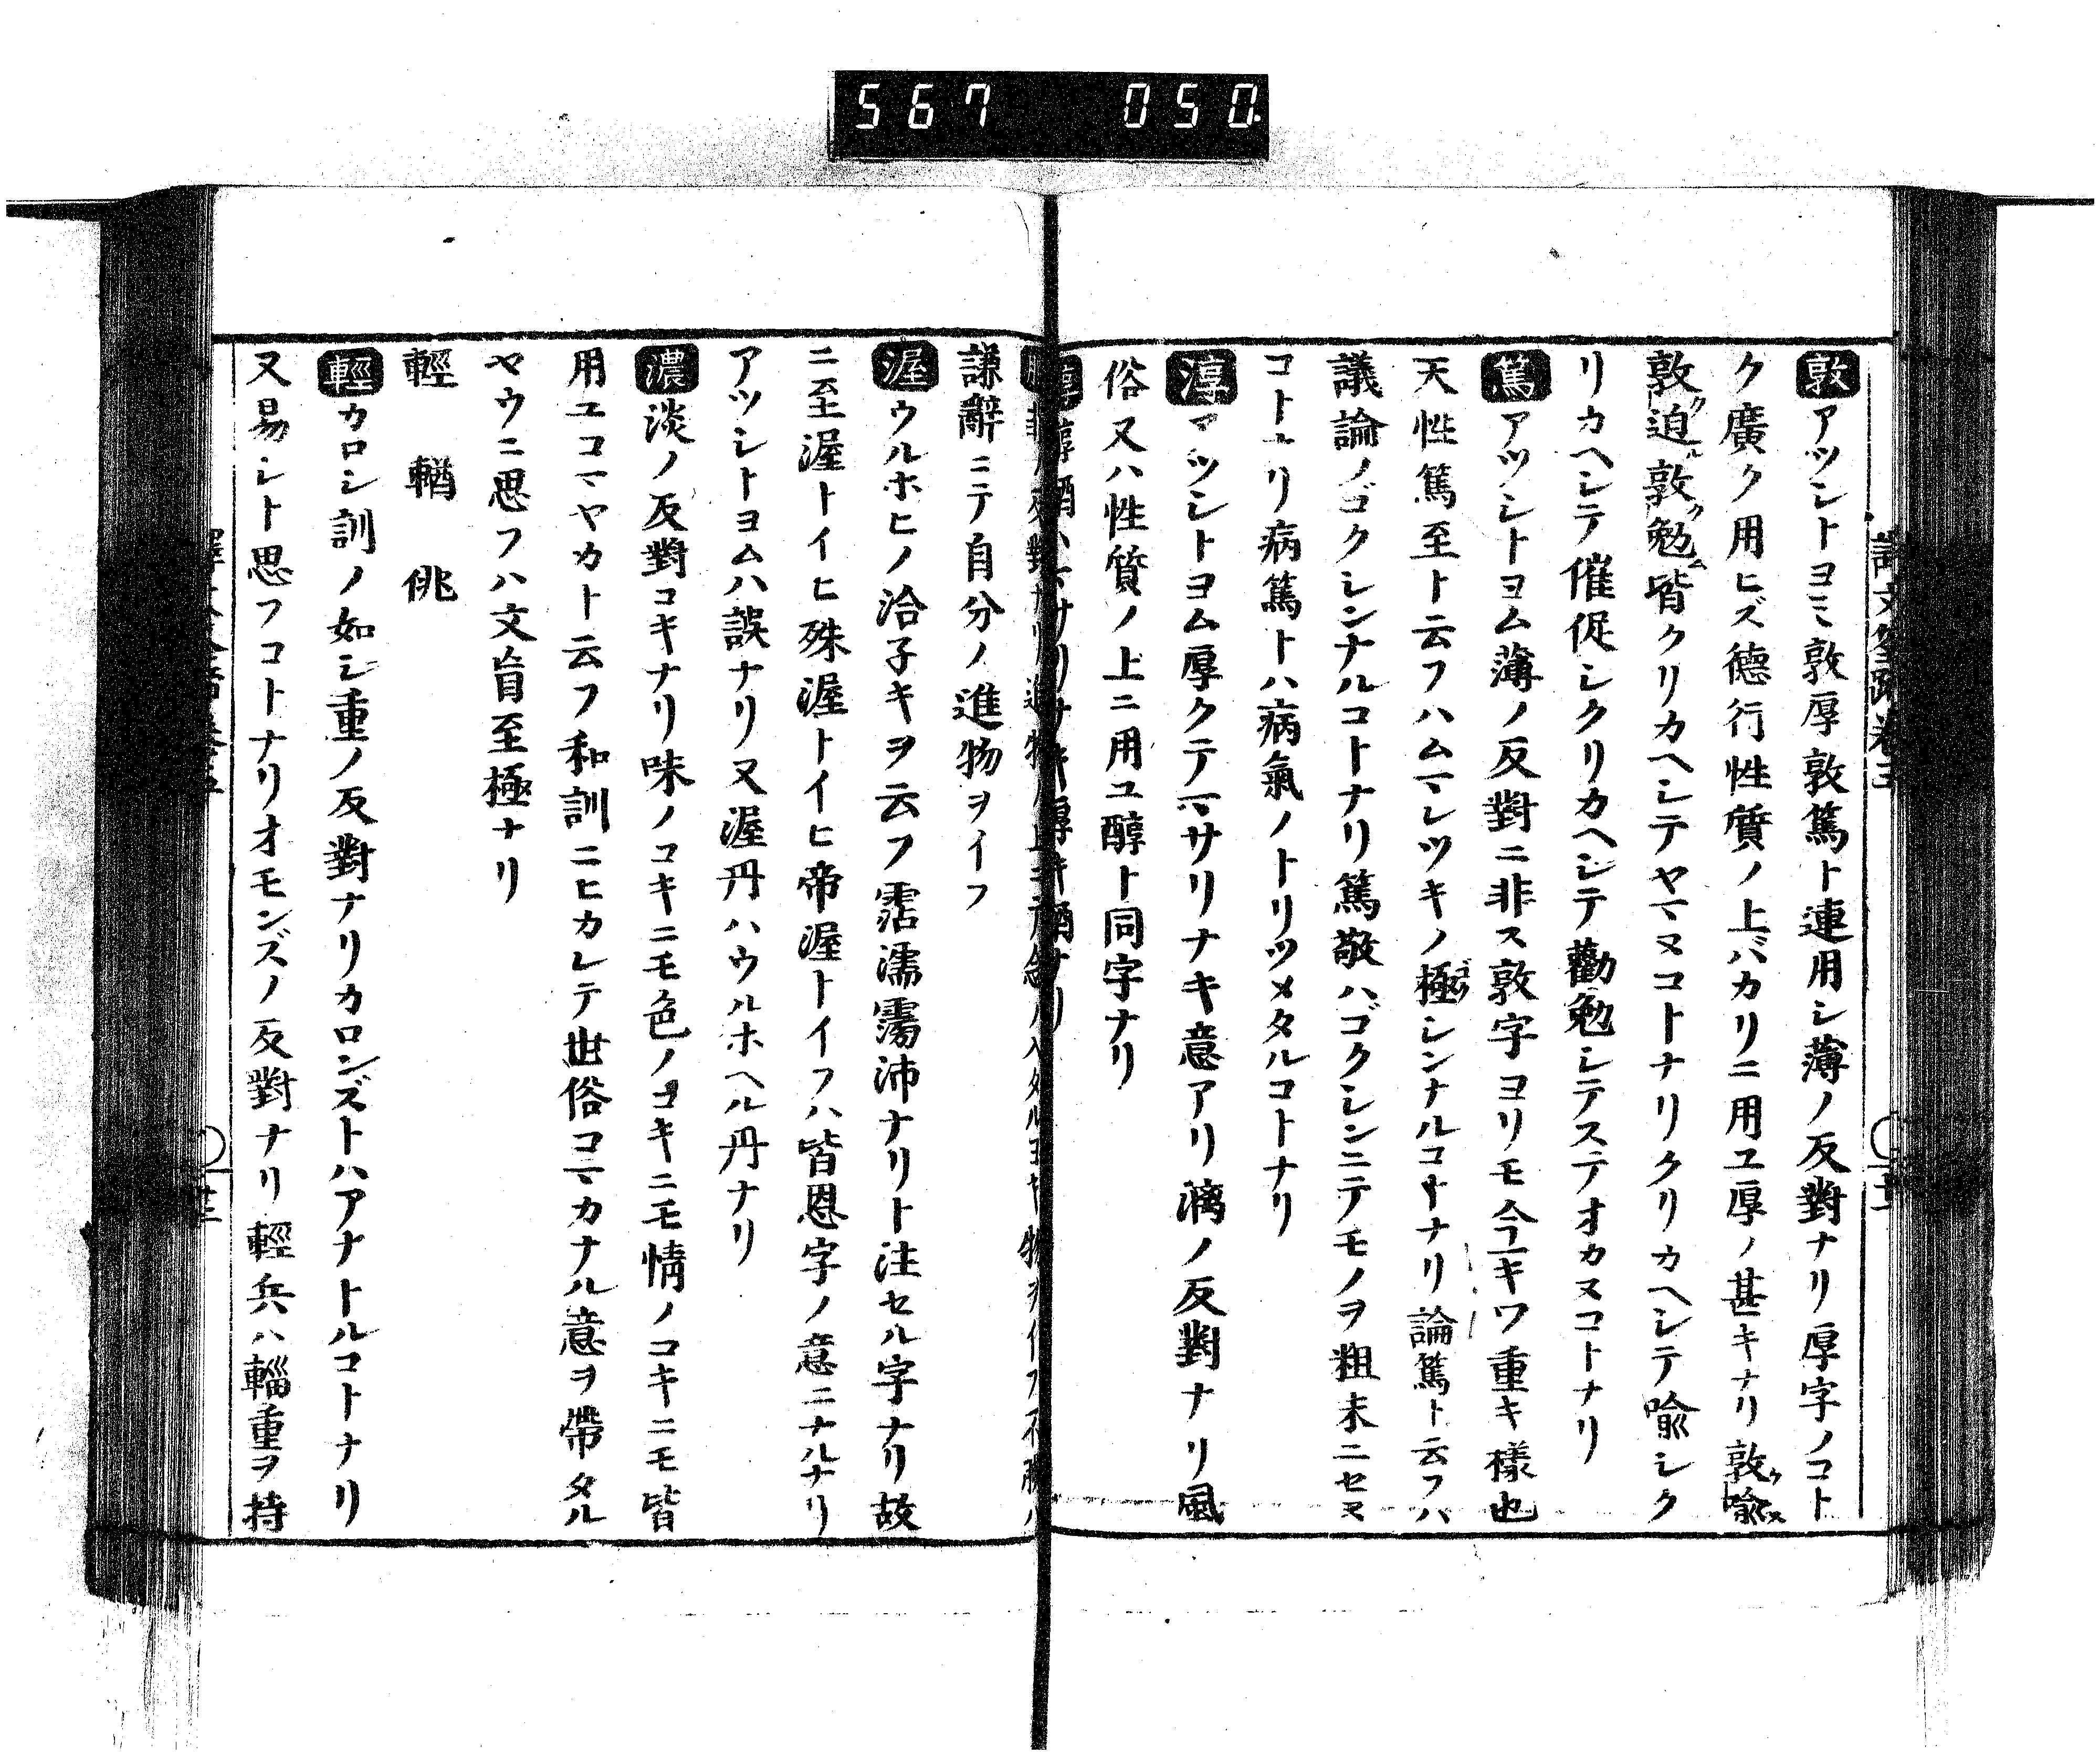 567 050
敦アツシトヨミ敦厚敦篤ト連用シ薄ノ反對ナリ厚字ノコト
ク廣ク用ヒズ德行性質ノ上バカリニ用ユ厚ノ甚キナリ敦喩
敦迫敦勉皆クリカヘシテヤマヌコトナリクリカヘシテ喩シク
リカヘシテ催促シクリカヘシテ勸勉シテステオカヌコトナリ
篤アツシトヨム薄ノ反對ニ非ス敦字ヨリモ今一キワ重キ樣也
天性篤至ト云フハムマレツキノ極シンナルコトナリ論篤ト云フハ
議論ノゴクシンナルコトナリ篤敬ハゴクシンニテモノヲ粗末ニセヌ
コトナリ病篤トハ病氣ノトリツメタルコトナリ
淳アツシトヨム厚クテマサリナキ意アリ漓ノ反對ナリ風
俗又ハ性質ノ上ニ用ユ醇ト同字ナリ
謙辭ニテ自分ノ進物ヲイフ
渥ウルホヒノ洽子キヲ云フ霑濡霶沛ナリト注セル字ナリ故
ニ至渥トイヒ殊渥トイヒ帝渥トイフハ皆恩字ノ意ニナルナリ
アツシトヨムハ誤ナリ又渥丹ハウルホヘル丹ナリ
濃淡ノ反對コキナリ味ノコキニモ色ノコキニモ情ノコキニモ皆
用ユコマヤカト云フ和訓ニヒカレテ世俗コマカナル意ヲ帶タル
ヤウニ思フハ文盲至極ナリ
輕 輶 佻
輕カロシ訓ノ如シ重ノ反對ナリカロンズトハアナトルコトナリ
又易シト思フコトナリオモンズノ反對ナリ輕兵ハ輜重ヲ持